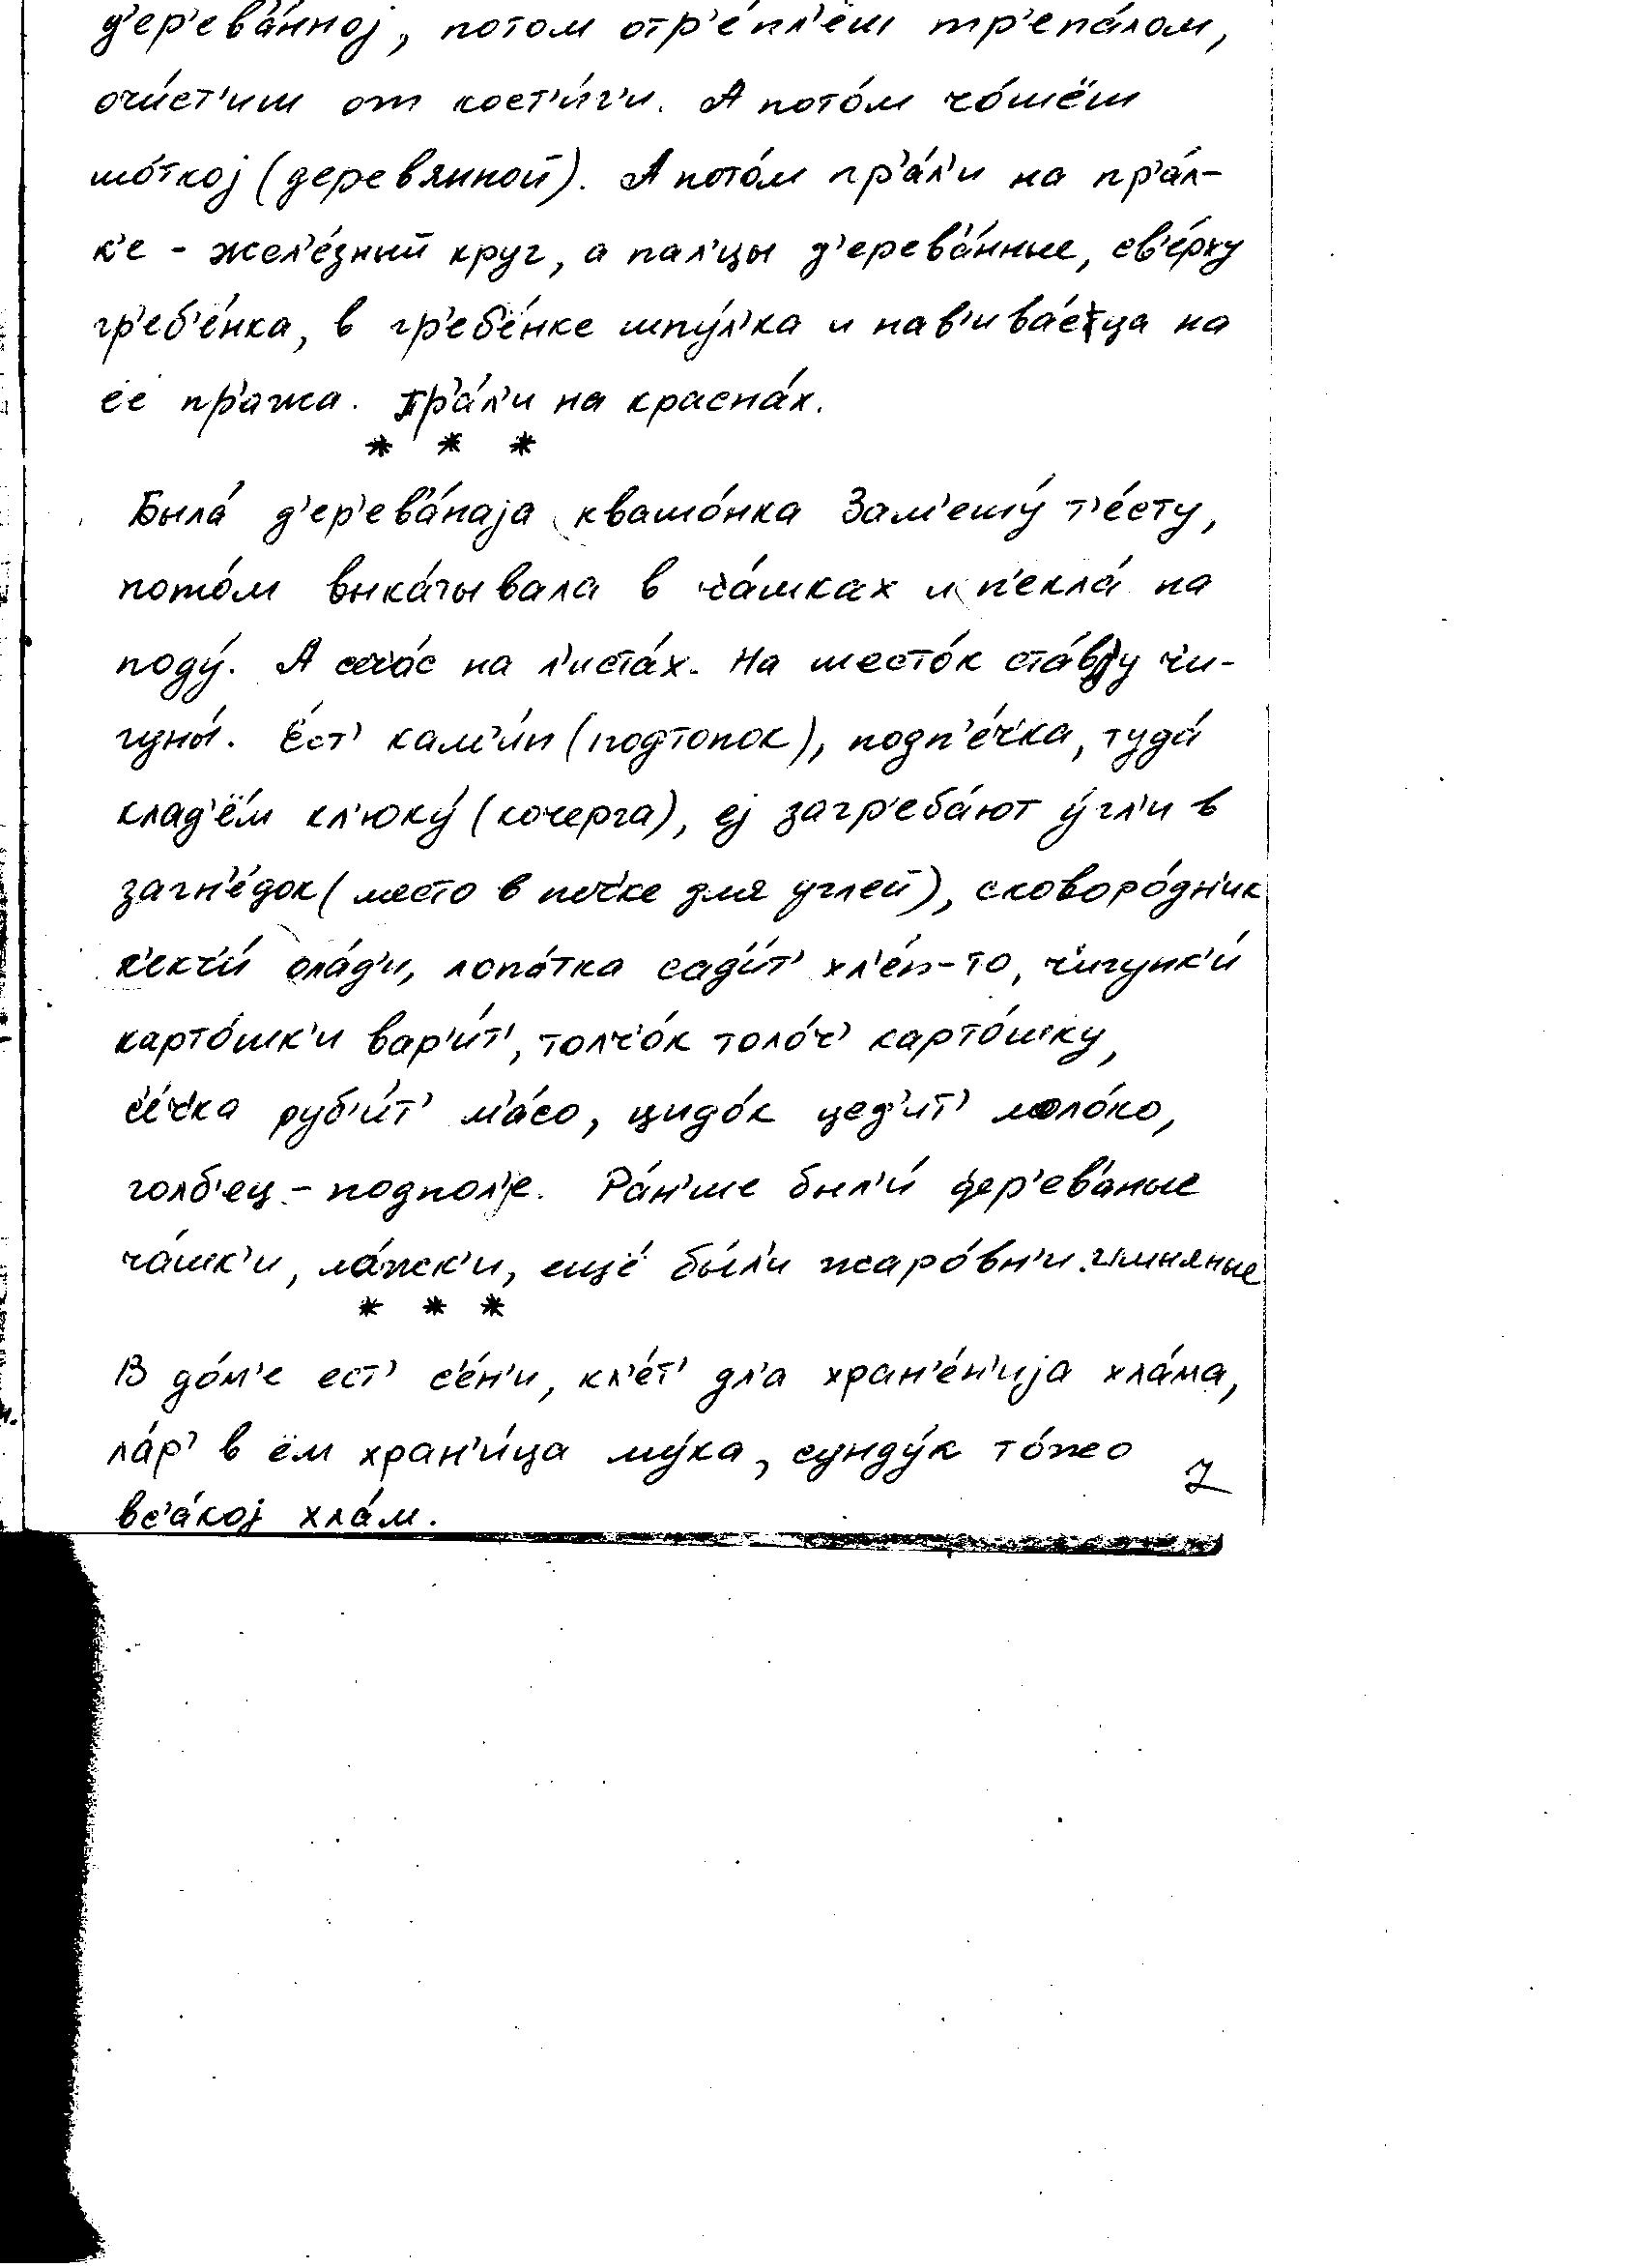 д'ер'ев'а́нној, потом отр'е́пл'еш тр'епа́лом,
очи́ст'иш от кост'и́г'и. А пото́м чо́шёш
шо́ткој (деревянной). А пото́м пр'а́л'и на пр'а́л-
к'е - жел'е́зный круг, а пал'цы д'ерев'а́нные, св'е́рху
гр'еб'е́нка, в гр'еб'е́нке шпу́л'ка и нав'ива́етца на
её пр'ажа. Пр'а́л'и на красна́х.
* * *
Была́ д'ер'ев'а́наја квашо́нка Зам'ешу́ т'е́сту,
пото́м выка́тывала в ча́шках и п'екла́ на
поду́. А сича́с на л'иста́х. На шесто́к ста́вjу чи-
гуны́. Ёст' кам'и́н (подтопок), подп'е́чка, туда́
клад'ём кл'юку́ (кочерга), еј загр'еба́ют у́гл'и в
загн'е́док (место в печке для углей), сковоро́дн'ик
п'екчи́ ола́д'и, лопа́тка сад'и́т' хл'е́п-то, чигунк'и́
карто́шк'и вар'и́т', толчо́к толо́ч' карто́шку,
с'е́чка руб'и́т' м'а́со, цидо́к цед'ит' моло́ко,
голб'ец - подпол'је. Ра́н'ше был'и́ дер'ев'аные
ча́шк'и, ло́жк'и, ещё бы́л'и жаро́вн'и глиняные
* * *
В до́м'е ест' с'е́н'и, кл'е́т' дл'а хран'е́н'ија хла́ма,
ла́р' в ём хран'и́ца му́ка, сунду́к то́жо
вс'а́кој хла́м.
7